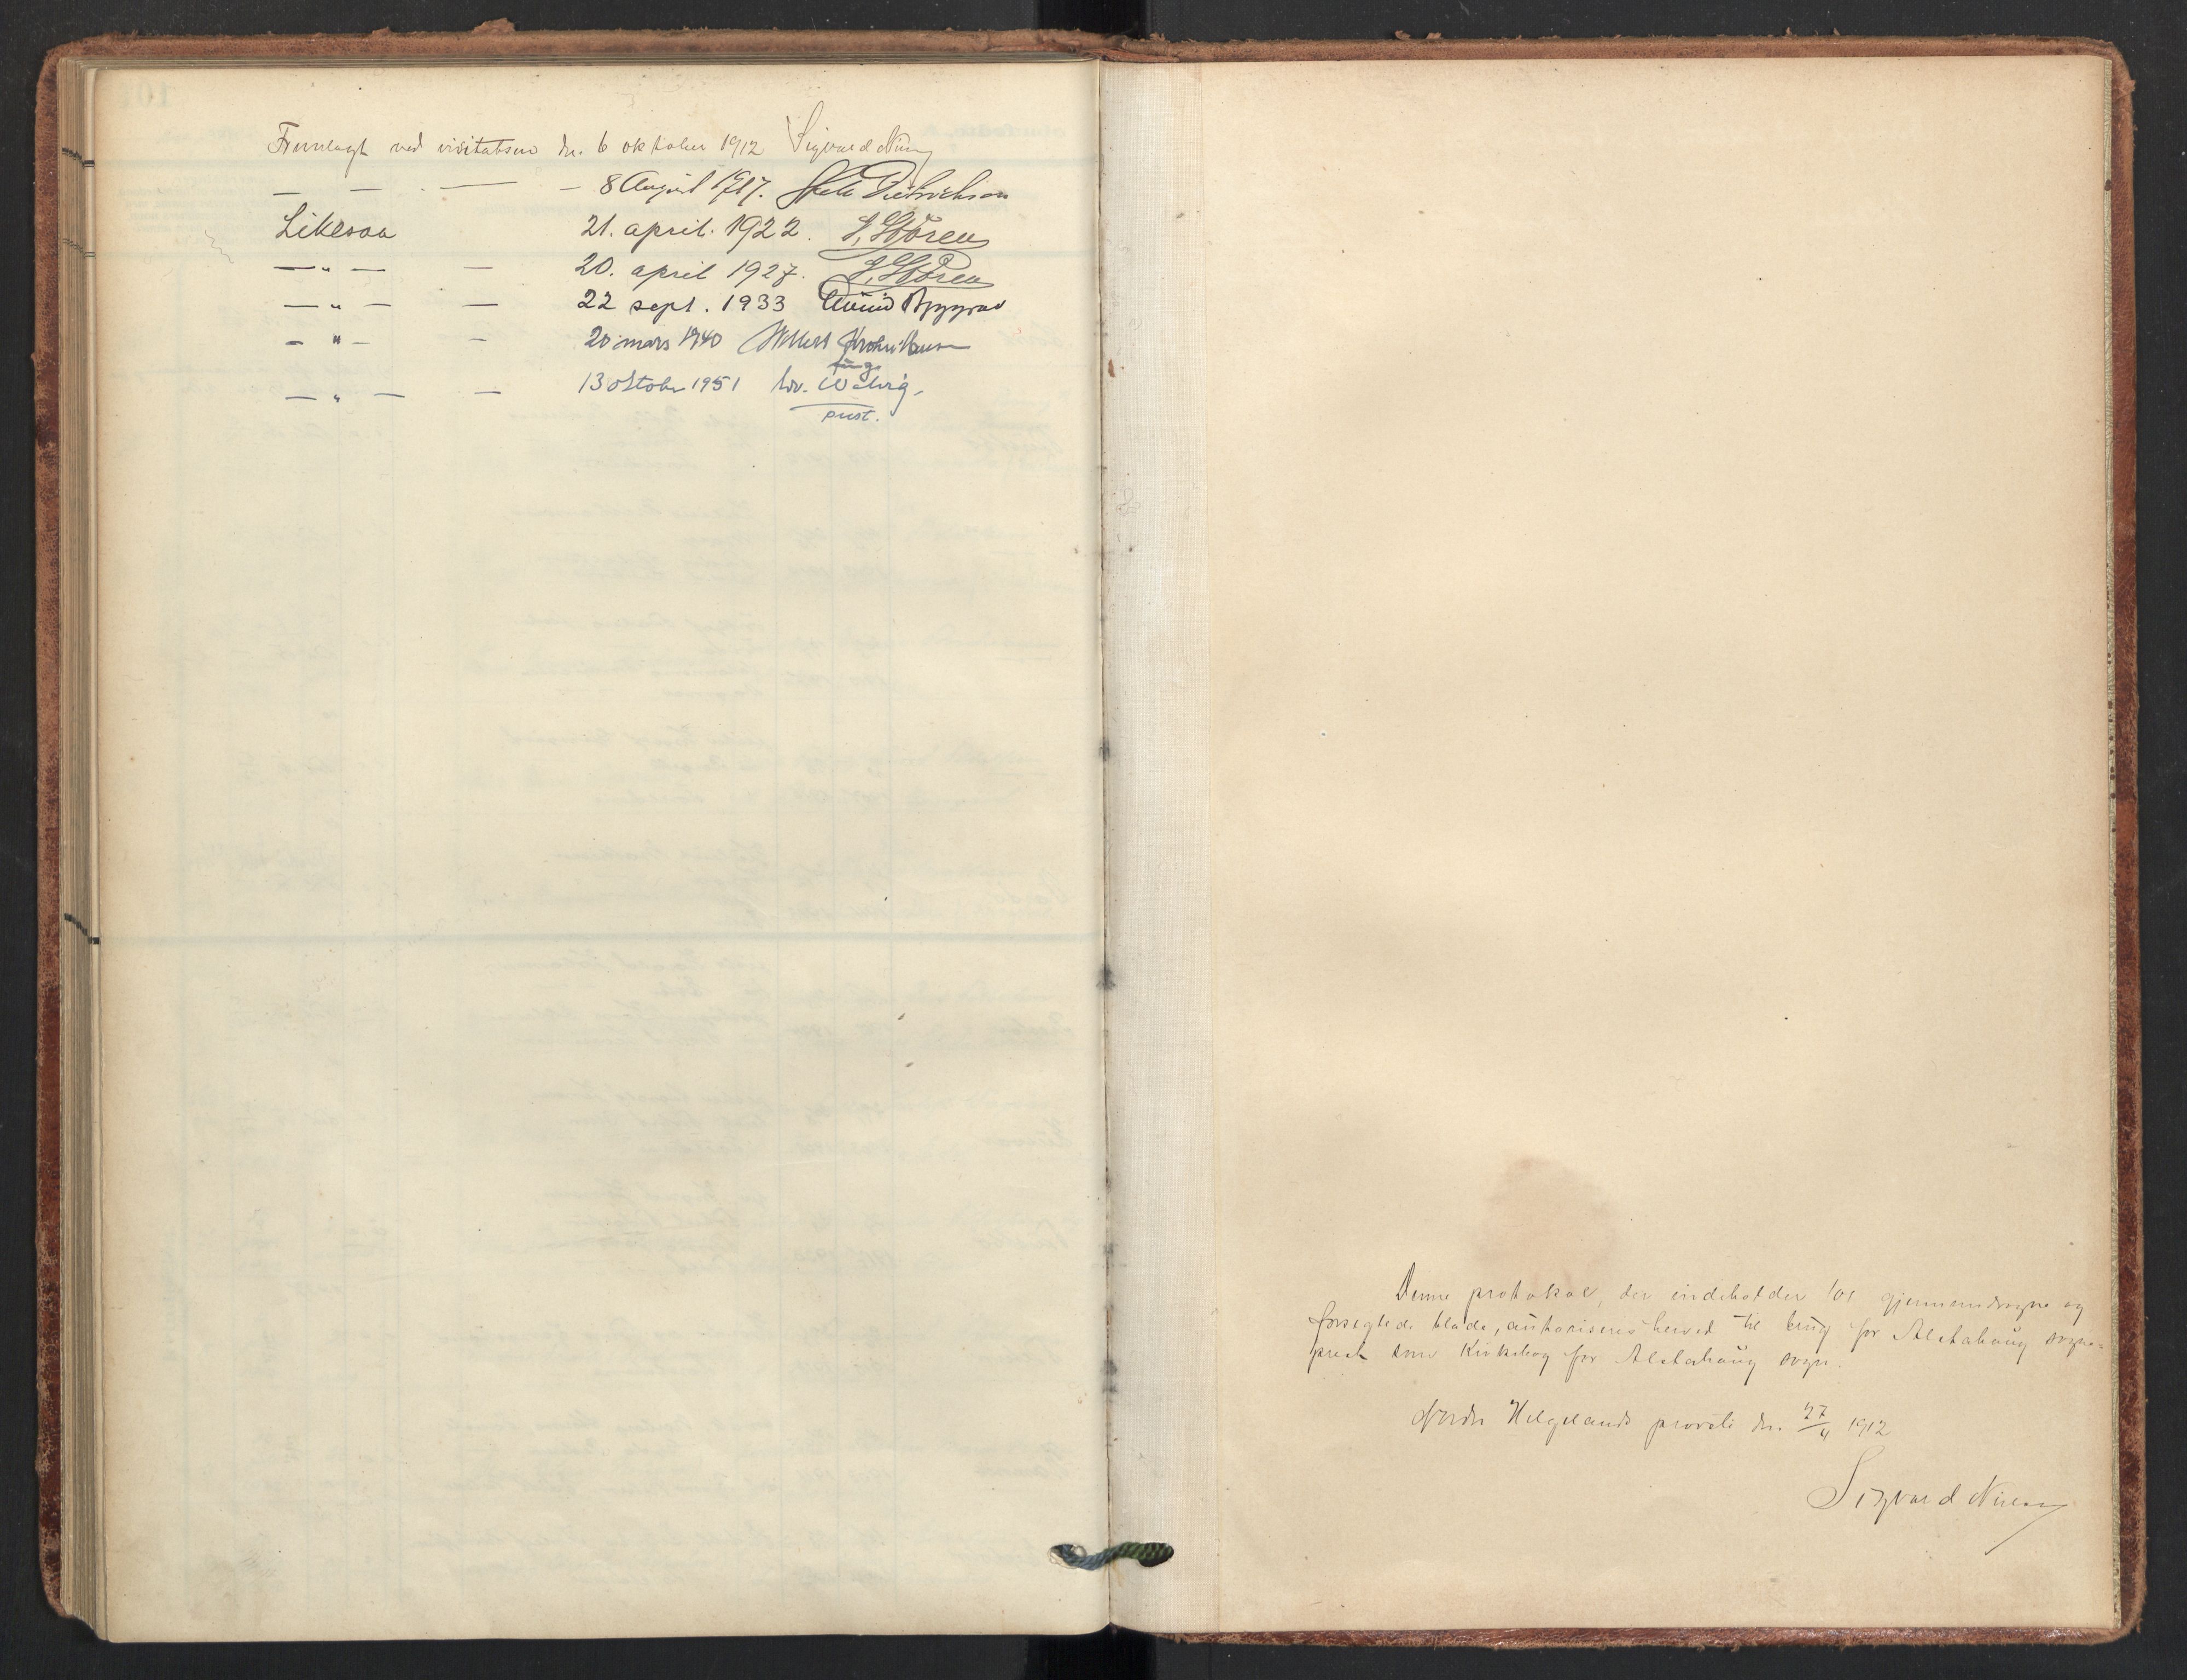 Fremlagt ved visitatsen dn. 6 oktober 1912 Sigvard Nielsen
— — — — 8 August 1917. Dietrichson
Likesaa 21. april. 1922. J. Støren
— „ — — 20. april 1927. J. Støren
— „ — — 22 sept. 1933 Eivind Berggrav
— „ — — 20 mars 1940 Wollert Krohn Hansen
— „ — — 13 oktober 1951
prost.
Denne protokol, der indeholder 101 gjennemdragne og
forseglede blade, autoriseres herved til brug for Alstahaug sogne=
prest som Kirkebog for Alstahaug sogn.
Nordre Helgelands provsti dn. 27/4 1912
Sigvard Nielsen